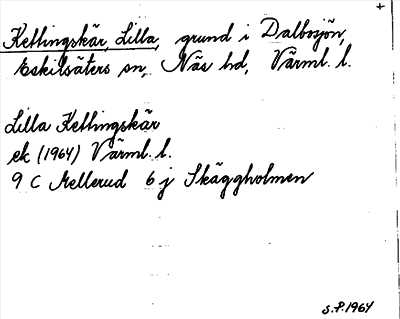 +
Kettingskär, Lilla, grund i Dalbosjön,
Eskilsäters sn, Näs hd, Värml. l.
Lilla Kettingskär
ek (1964) Värml. l.
9 C Mellerud 6 j Skäggholmen
S.P. 1964